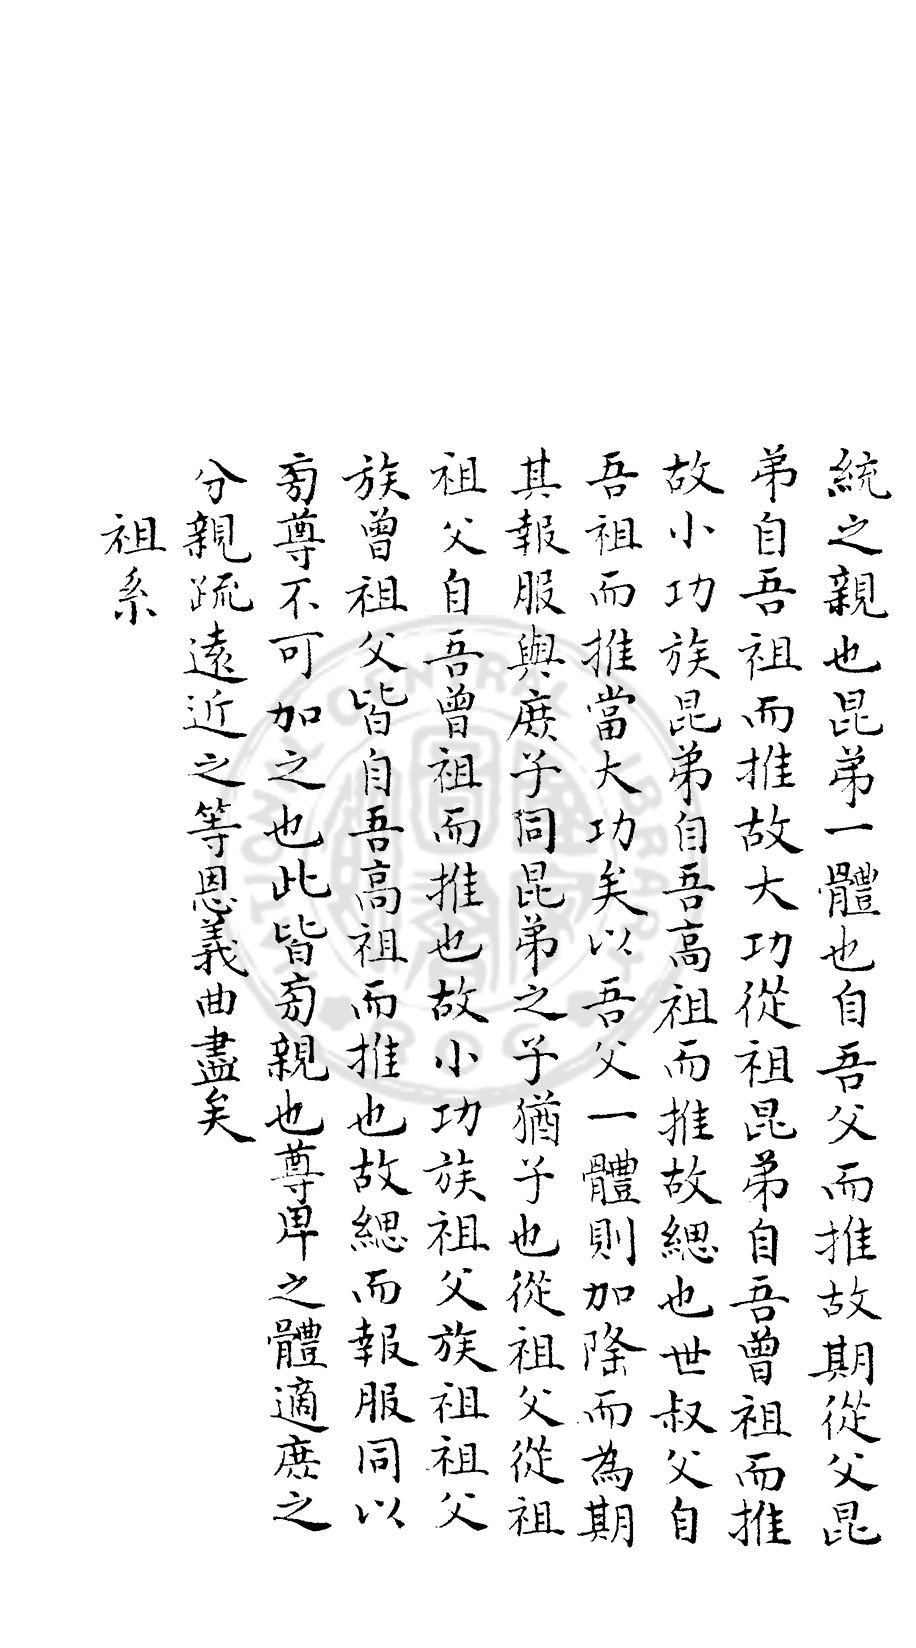 統之親也昆弟一體也自吾父而推故期從父昆
弟自吾祖而推故大功從祖昆弟自吾曾祖而推
故小功族昆弟自吾高祖而推故緦也世叔父自
吾祖而推當大功矣以吾父一體則加隆而為期
其報服與庶子同昆弟之子猶子也從祖父從祖
祖父自吾曾祖而推也故小功族祖父族祖祖父
族曾祖父皆自吾高祖而推也故緦而報服同以
旁尊不可加之也此皆旁親也尊卑之體適庶之
分親疏遠近之等恩義曲盡矣
祖系
NATIONAL CENTRAL LIBRARY
ROC